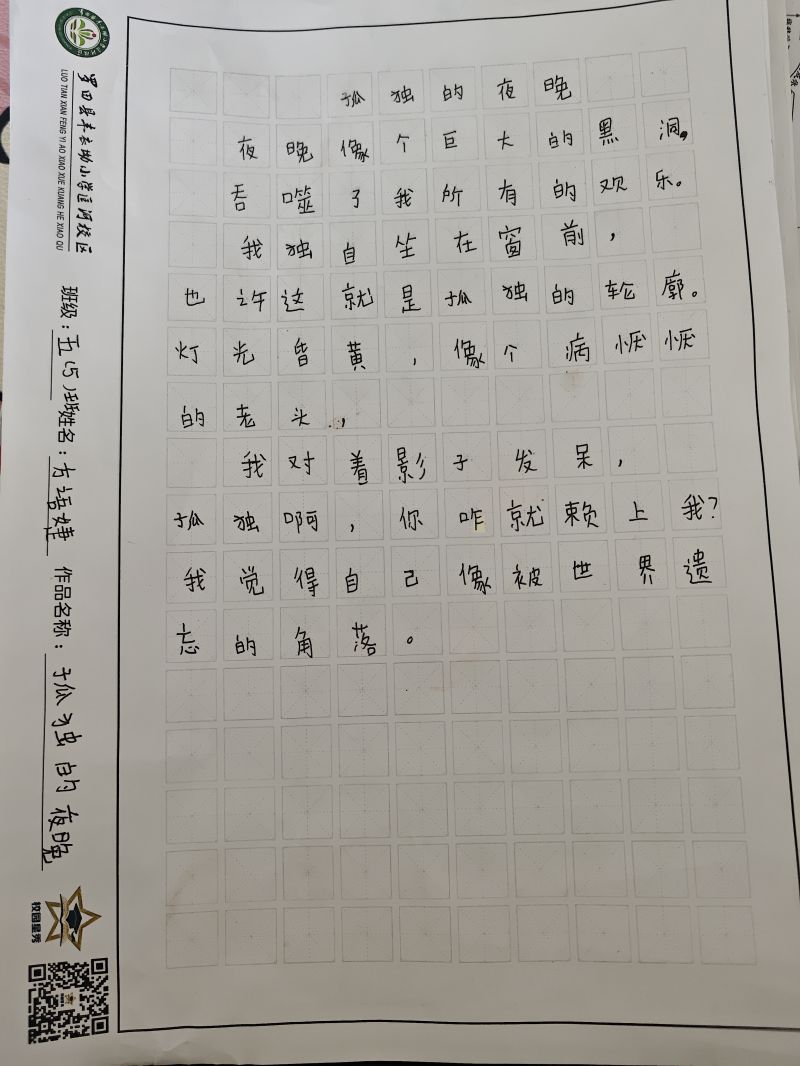 孤独的夜晚
夜晚像个巨大的黑洞,
吞噬了我所有的欢乐。
我独自坐在窗前，
也许这就是孤独的轮廓。
灯光昏黄，像个病恹恹
的老头，
我对着影子发呆，
孤独啊，你咋就赖上我?
我觉得自己像被世界遗
忘的角落。
罗田县丰衣坳小学匡河校区
LUO TIAN XIAN FENG YI AO XIAO XUE KUANG HE XIAO QU
班级：五(5)班姓名：方语婕 作品名称：孤独的夜晚
校园星秀